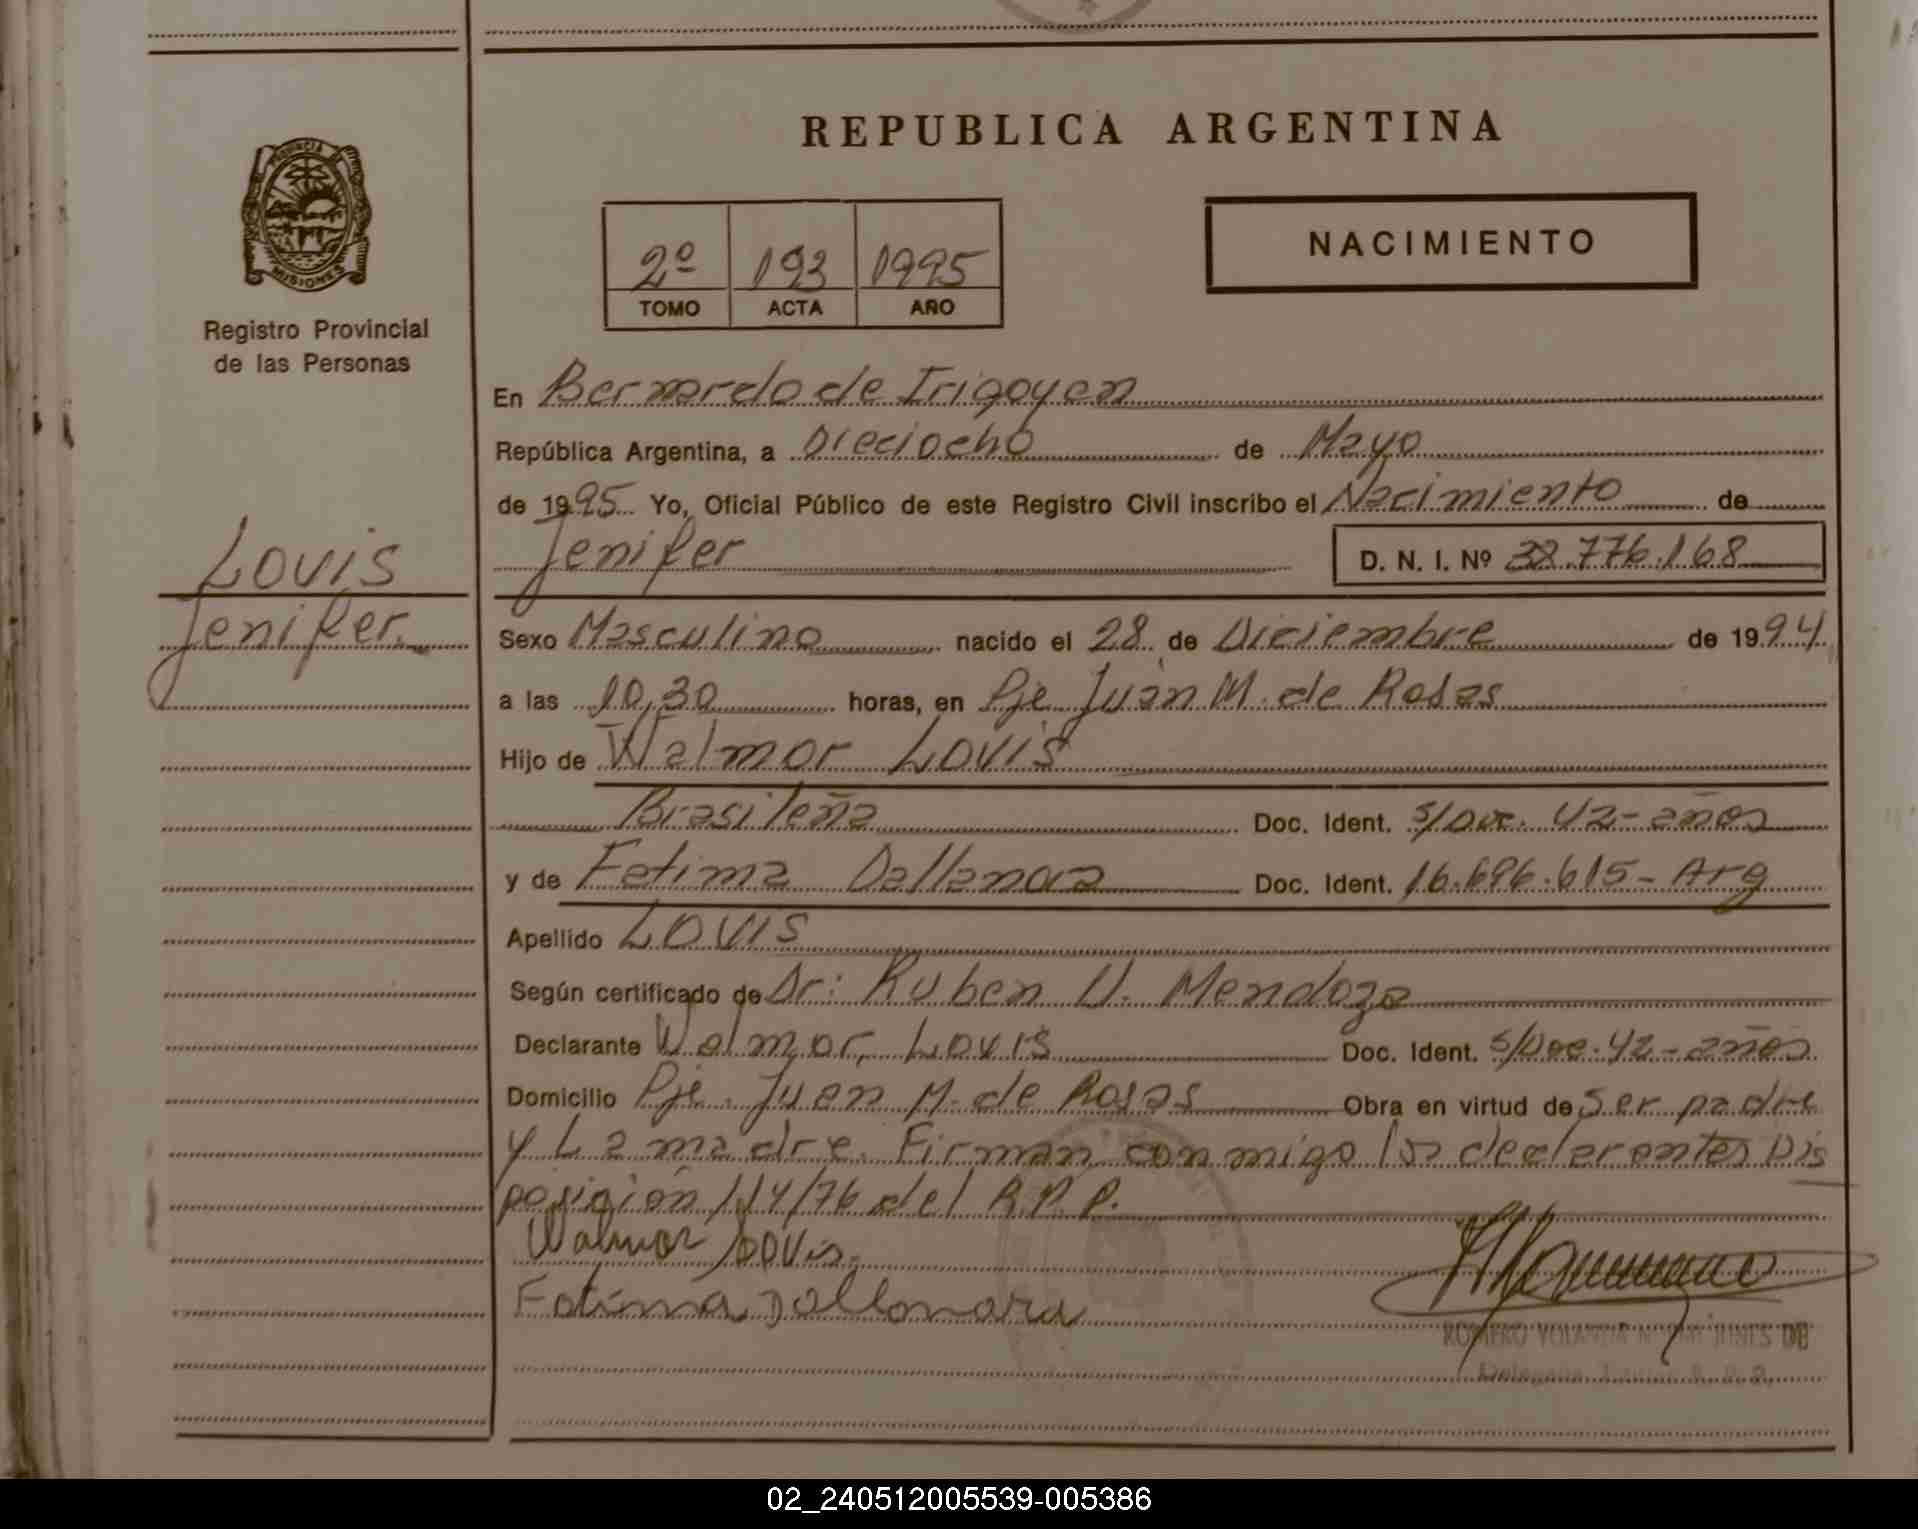 REPUBLICA ARGENTINA
PROVINCIA
MISIONES
Registro Provincial
de las Personas
2º 193 1995
TOMO ACTA AÑO
NACIMIENTO
En Bernardo de Irigoyen
República Argentina, a Dieciocho de Mayo
de 1995 Yo, Oficial Público de este Registro Civil inscribo el Nacimiento de
Jenifer D. N. I. Nº 38.776.168
Lovis
Jenifer.
Sexo Masculino nacido el 28 de Diciembre de 1994
a las 10,30 horas, en Pje Juan M. de Rosas
Hijo de Walmor Lovis
Brasileña Doc. Ident. s/Doc. 42-años
y de Fatima Dallanora Doc. Ident. 16.696.615- Arg
Apellido Lovis
Según certificado de Dr: Ruben D. Mendoza
Declarante Walmor Lovis Doc. Ident. s/Doc. 42-años
Domicilio Pje. Juan M. de Rosas Obra en virtud de Ser padre
y La madre. Firman conmigo los declarantes Dis
posición 114/76 del R.P.P.
Walmor Lovis.
Fatima Dallanora
ROMERO YOLANDA DE
02_240512005539-005386